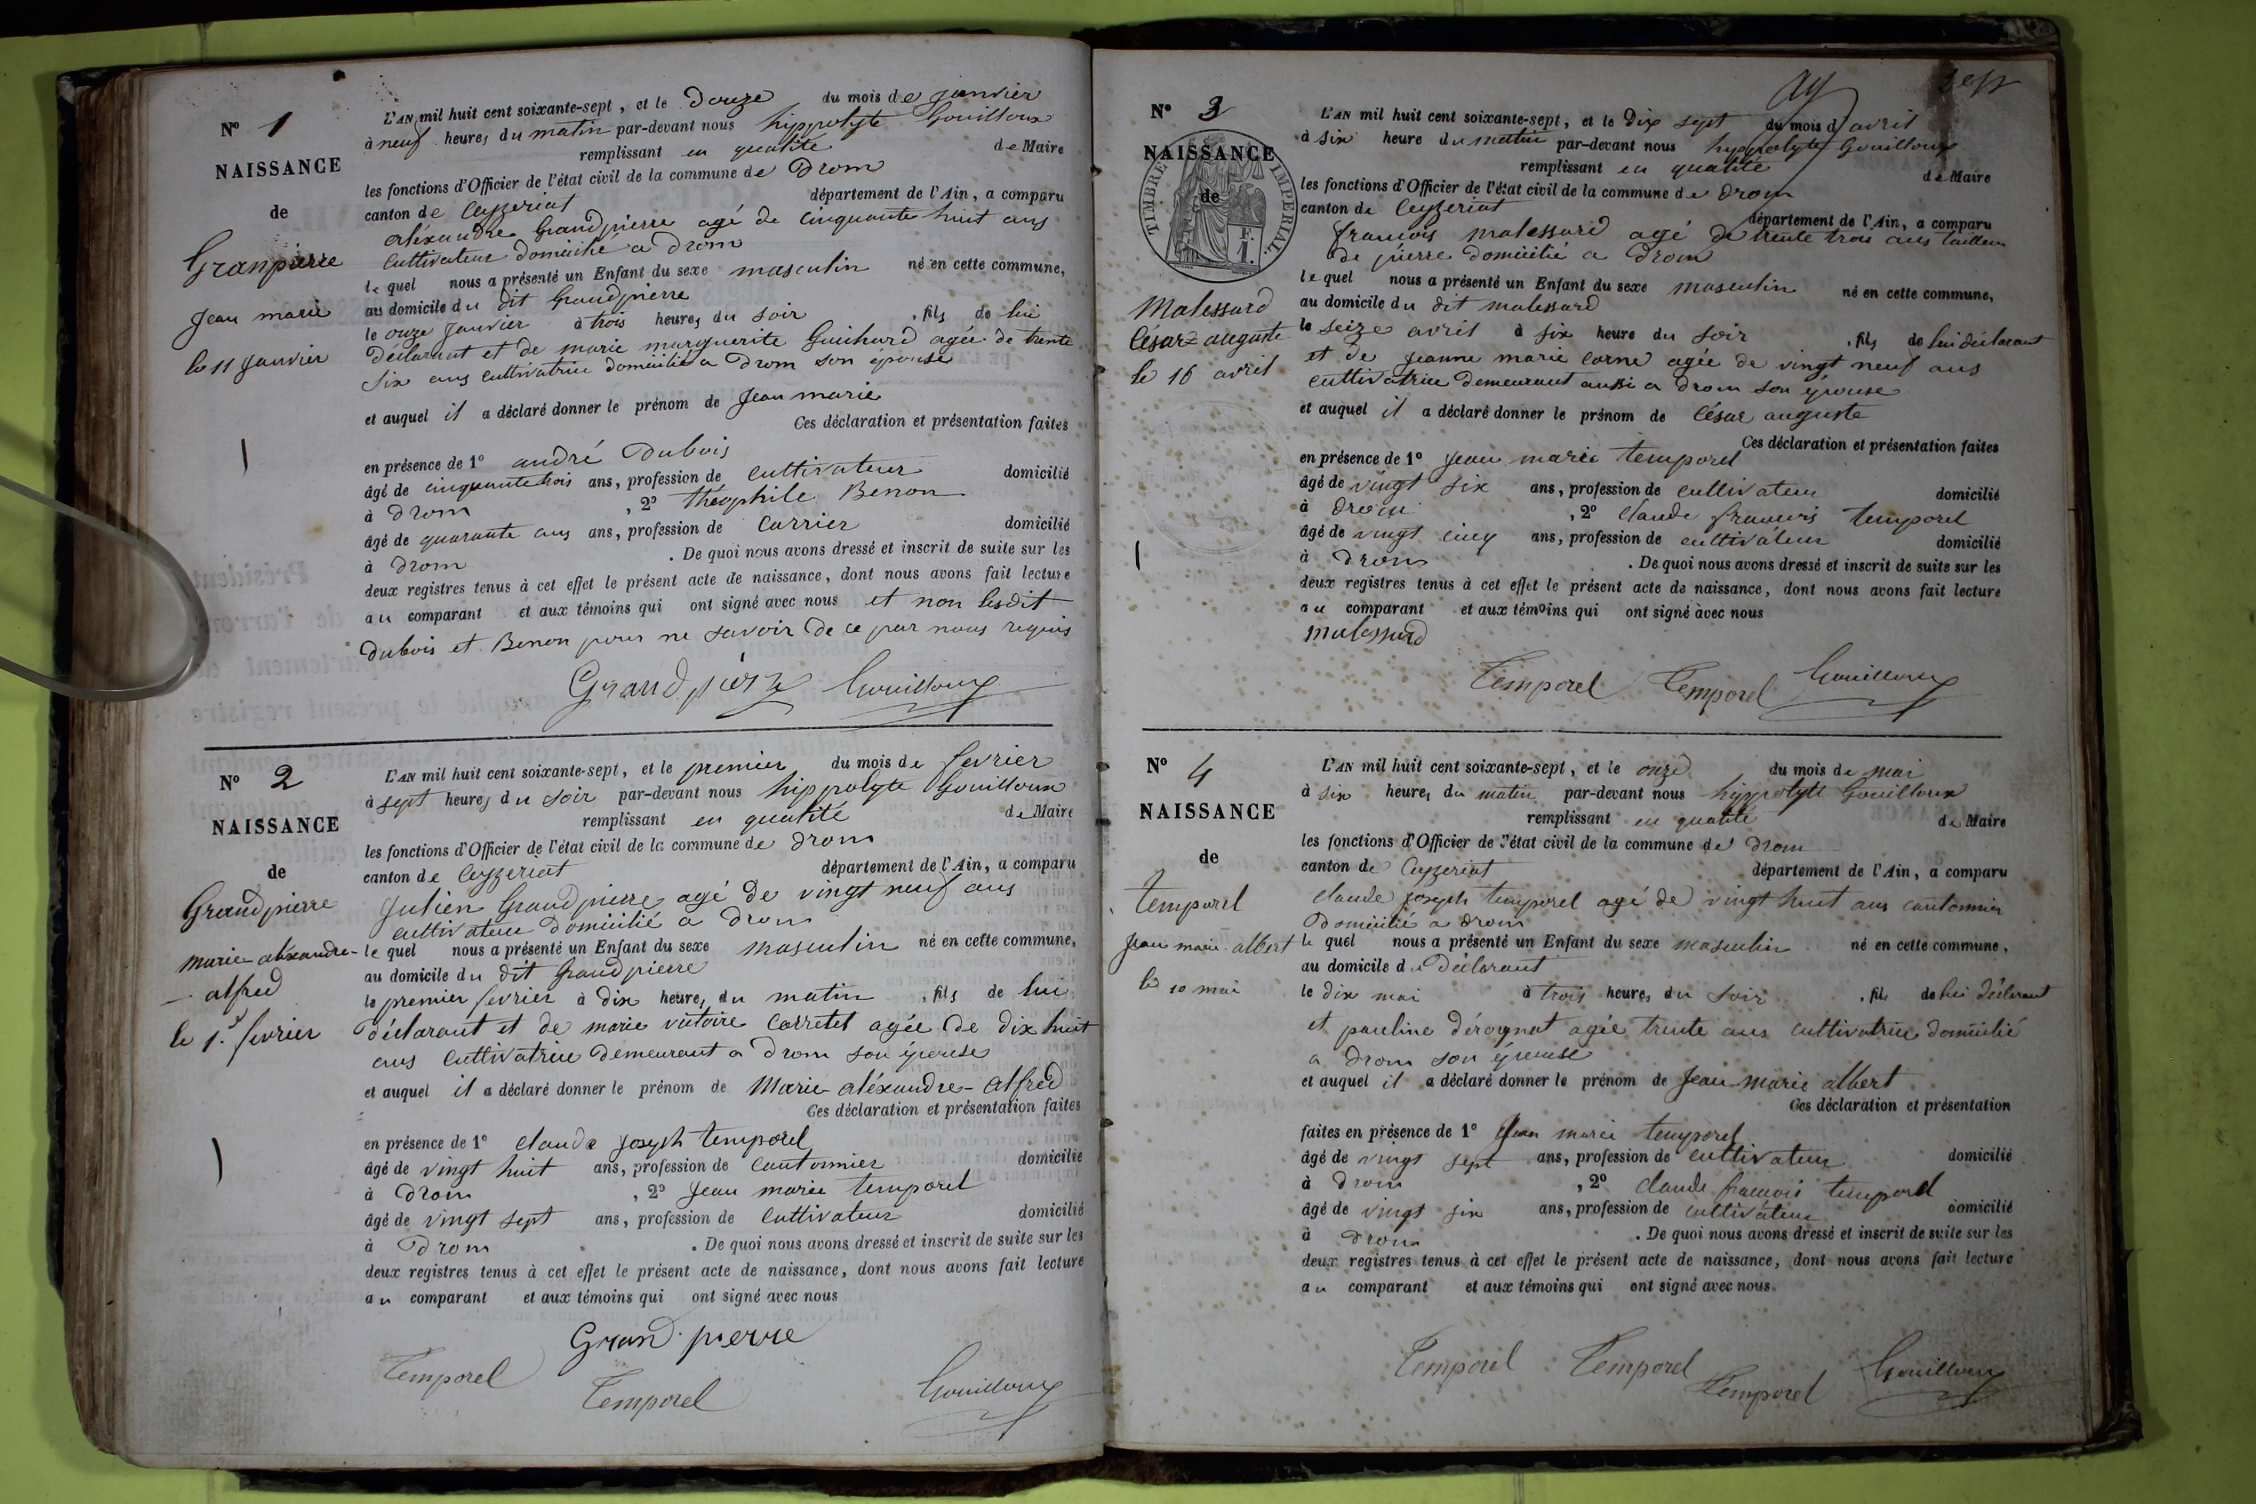 N° 1
NAISSANCE
de
Granpierre
Jean marie
le 11 Janvier
L'AN mil huit cent soixante-sept, et le Douze du mois de janvier
à neuf heures du matin par-devant nous hyppolyte Gouilloux
remplissant en qualité de Maire
les fonctions d'Officier de l'état civil de la commune de Drom
canton de Ceyzeriat département de l'Ain, a comparu
aléxandre Grandpierre agé de cinquante huit ans
Cultivateur domicilié a Drom
le quel nous a présenté un Enfant du sexe masculin né en cette commune,
au domicile du dit Grandpierre
le onze Janvier à trois heures du soir , fils de lui
Déclarant et de marie marguerite Guichard agée de trente
six ans cultivatrice domiciliée a Drom son épouse
et auquel il a déclaré donner le prénom de Jean marie
Ces déclaration et présentation faites
en présence de 1° andré Dubois
âgé de cinquante trois ans, profession de cultivateur domicilié
à Drom , 2° théophile Benon
âgé de quarante ans ans, profession de Carrier domicilié
à Drom . De quoi nous avons dressé et inscrit de suite sur les
deux registres tenus à cet effet le présent acte de naissance, dont nous avons fait lecture
au comparant et aux témoins qui ont signé avec nous et non lesdit
Dubois et Benon pour ne savoir de ce par nous requis
Grandpierre Gouilloux
N° 2
NAISSANCE
de
Grandpierre
marie-aléxandre-
alfred
le 1er fevrier
L'AN mil huit cent soixante-sept, et le premier du mois de fevrier
à sept heures du soir par-devant nous hippolyte Gouilloux
remplissant en qualité de Maire
les fonctions d'Officier de l'état civil de la commune de Drom
canton de Ceyzeriat département de l'Ain, a comparu
Julien Grandpierre agé de vingt neuf ans
cultivateur domicilié a Drom
le quel nous a présenté un Enfant du sexe masculin né en cette commune,
au domicile du dit Grandpierre
le premier fevrier à dix heures du matin , fils de lui
déclarant et de marie victoire Carretet agée de dix huit
ans Cultivatrice demeurant a Drom son épouse
et auquel il a déclaré donner le prénom de Marie-aléxandre-alfred
Ces déclaration et présentation faites
en présence de 1° claude joseph temporel
âgé de vingt huit ans, profession de Cantonnier domicilié
à Drom , 2° Jean marie temporel
âgé de vingt sept ans, profession de Cultivateur domicilié
à Drom . De quoi nous avons dressé et inscrit de suite sur les
deux registres tenus à cet effet le présent acte de naissance, dont nous avons fait lecture
au comparant et aux témoins qui ont signé avec nous
Grand pierre
Temporel Temporel Gouilloux
N° 3
NAISSANCE
de
TIMBRE IMPERIAL.
1 F.
Malessard
César-auguste
le 16 avril
L'AN mil huit cent soixante-sept, et le dix sept du mois d'avril
à six heure du matin par-devant nous hyppolyte Gouilloux
remplissant en qualité de Maire
les fonctions d'Officier de l'état civil de la commune de Drom
canton de Ceyzeriat département de l'Ain, a comparu
françois malessard agé de trente trois ans tailleur
de pierre domicilié a Drom
le quel nous a présenté un Enfant du sexe masculin né en cette commune,
au domicile du dit malessard
le seize avril à six heure du soir , fils de lui déclarant
et de Jeanne marie Corne agée de vingt neuf ans
cultivatrice demeurant aussi a Drom son épouse
et auquel il a déclaré donner le prénom de César auguste
Ces déclaration et présentation faites
en présence de 1° Jean marie temporel
âgé de vingt six ans, profession de cultivateur domicilié
à Drom , 2° claude françois temporel
âgé de vingt cinq ans, profession de cultivateur domicilié
à Drom . De quoi nous avons dressé et inscrit de suite sur les
deux registres tenus à cet effet le présent acte de naissance, dont nous avons fait lecture
au comparant et aux témoins qui ont signé avec nous
malessard
Temporel Temporel Gouilloux
N° 4
NAISSANCE
de
temporel
Jean marie albert
le 10 mai
L'AN mil huit cent soixante-sept, et le onze du mois de mai
à six heures du matin par-devant nous hyppolyte Gouilloux
remplissant en qualité de Maire
les fonctions d'Officier de l'état civil de la commune de Drom
canton de Ceyzeriat département de l'Ain, a comparu
claude joseph temporel agé de vingt huit ans cantonnier
Domicilié a Drom
le quel nous a présenté un Enfant du sexe masculin né en cette commune,
au domicile du Déclarant
le dix mai à trois heures du soir , fils de lui déclarant
et pauline déroynat agée trente ans cultivatrice domicilié
a Drom son épouse
et auquel il a déclaré donner le prénom de Jean-marie albert
Ces déclaration et présentation
faites en présence de 1° Jean marie temporel
âgé de vingt sept ans, profession de cultivateur domicilié
à Drom , 2° claude françois temporel
âgé de vingt six ans, profession de cultivateur domicilié
à Drom . De quoi nous avons dressé et inscrit de suite sur les
deux registres tenus à cet effet le présent acte de naissance, dont nous avons fait lecture
au comparant et aux témoins qui ont signé avec nous.
Temporel Temporel Temporel Gouilloux